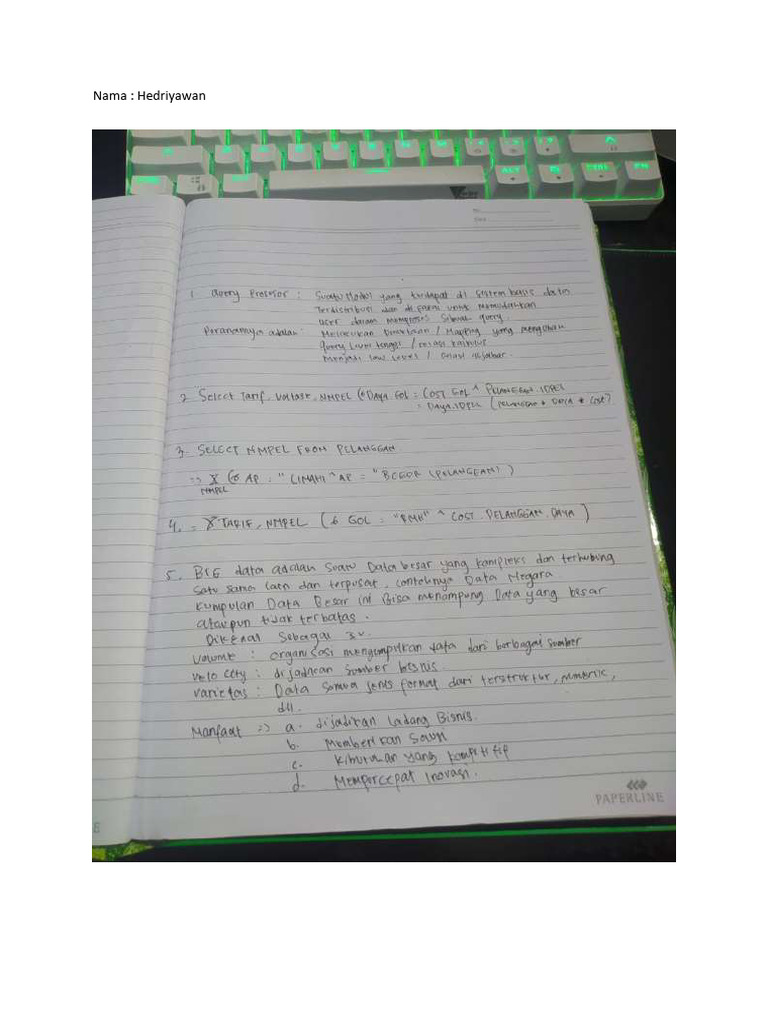 Nama : Hedriyawan
No.
Date
1 Query Prosesor : Suatu Modul yang terdapat di sistem basis data
Terdistribusi dan di fungsi untuk memudahkan
user dalam memproses sebuah query.
Peranannya adalah : Melakukan / Mapping yang mengubah
query level tinggi / relasi kalkulus
Menjadi low level / relasi aljabar.
2 Select Tarif, Voltase, NMPEL (σ DAYA.GOL = COST GOL ^ PELANGGAN.IDPEL
= DAYA.IDPEL (PELANGGAN * DAYA * COST)
3. SELECT NMPEL FROM PELANGGAN
=> (σ AP = "CIMAHI" ^ AP = "BOGOR (PELANGGAN) )
NMPEL
4. = TARIF, NMPEL ( σ GOL = ^ COST.PELANGGAN.DAYA )
5. BIG data adalah suatu Data besar yang kompleks dan terhubung
satu sama lain dan terpusat, contohnya Data Negara
Kumpulan Data Besar ini Bisa menampung Data yang besar
ataupun tidak terbatas.
Dikenal Sebagai 3V.
Volume : organisasi mengumpulkan data dari berbagai sumber
Velo city : dijadikan sumber bisnis.
Varietas : Data semua jenis format dari terstruktur, numeric,
dll.
Manfaat => a. dijadikan Ladang Bisnis.
b. Memberikan
c. yang kompetitif
d. Mempercepat Inovasi.
PAPERLINE